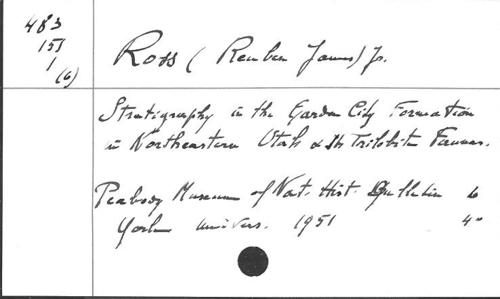 483
151
1
(6)
Ross (Reuben James) Jr.
Stratigraphy in the Garden City Formation
in Northeastern Utah & Its Trilobite Faunas.
Peabody Museum of Nat. Hist. Bulletin 6
Yale univers. 1951 4°